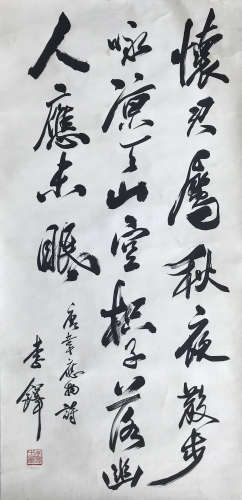 懷君屬秋夜散步
咏涼天山空松子落幽
人應未眠
唐韋應物詩
李鐸